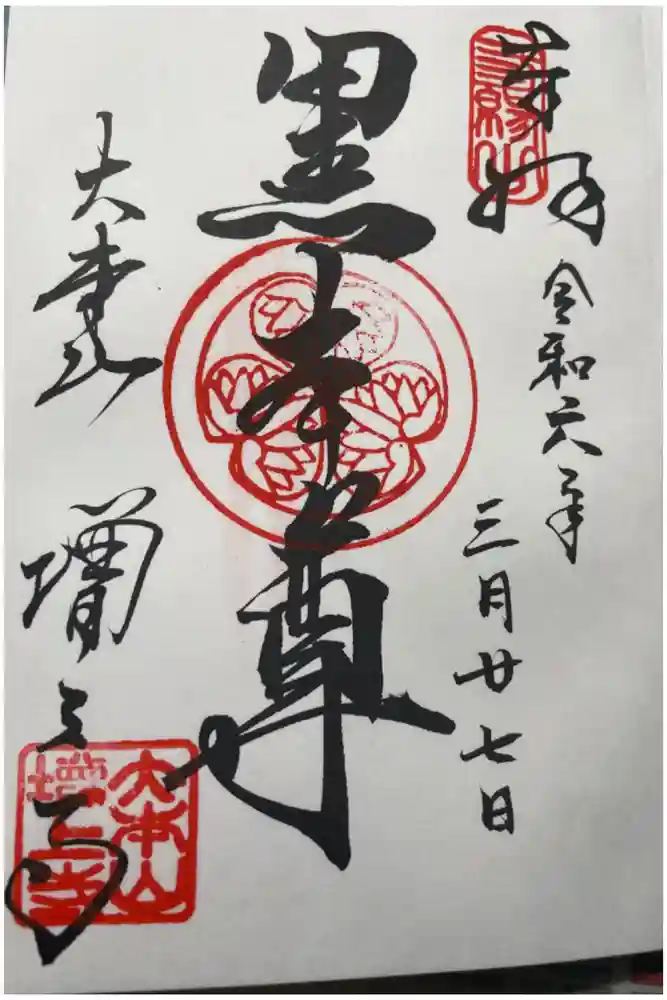 奉拝
三縁山
令和六年
三月廿七日
黒本尊
大本山
増上寺
大本山
増上寺